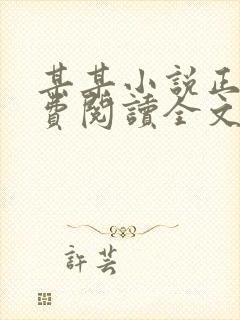 某某小說正
費閱讀全文
許芸